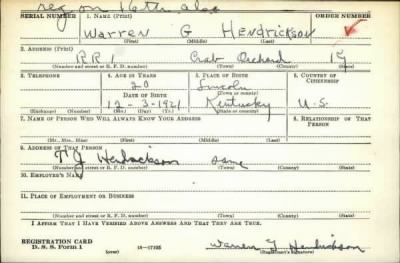 reg on 16th also
SERIAL NUMBER 1. NAME (Print) ORDER NUMBER
Warren G Hendrickson
(First) (Middle) (Last)
2. ADDRESS (Print)
RR Crab Orchard Ky
(Number and street or R. F. D. number) (Town) (County) (State)
3. TELEPHONE 4. AGE IN YEARS 5. PLACE OF BIRTH 6. COUNTRY OF CITIZENSHIP
20 Lincoln
DATE OF BIRTH (Town or county)
12-3-1921 Kentucky U.S.
(Exchange) (Number) (Mo.) (Day) (Yr.) (State or country)
7. NAME OF PERSON WHO WILL ALWAYS KNOW YOUR ADDRESS 8. RELATIONSHIP OF THAT PERSON
(Mr., Mrs., Miss) (First) (Middle) (Last)
9. ADDRESS OF THAT PERSON
T J Hendrickson Same
(Number and street or R. F. D. number) (Town) (County) (State)
10. EMPLOYER'S NAME
11. PLACE OF EMPLOYMENT OR BUSINESS
(Number and street or R. F. D. number) (Town) (County) (State)
I AFFIRM THAT I HAVE VERIFIED ABOVE ANSWERS AND THAT THEY ARE TRUE.
REGISTRATION CARD
D. S. S. Form 1 (over) 16-17105 Warren G Hendrickson
(Registrant's signature)